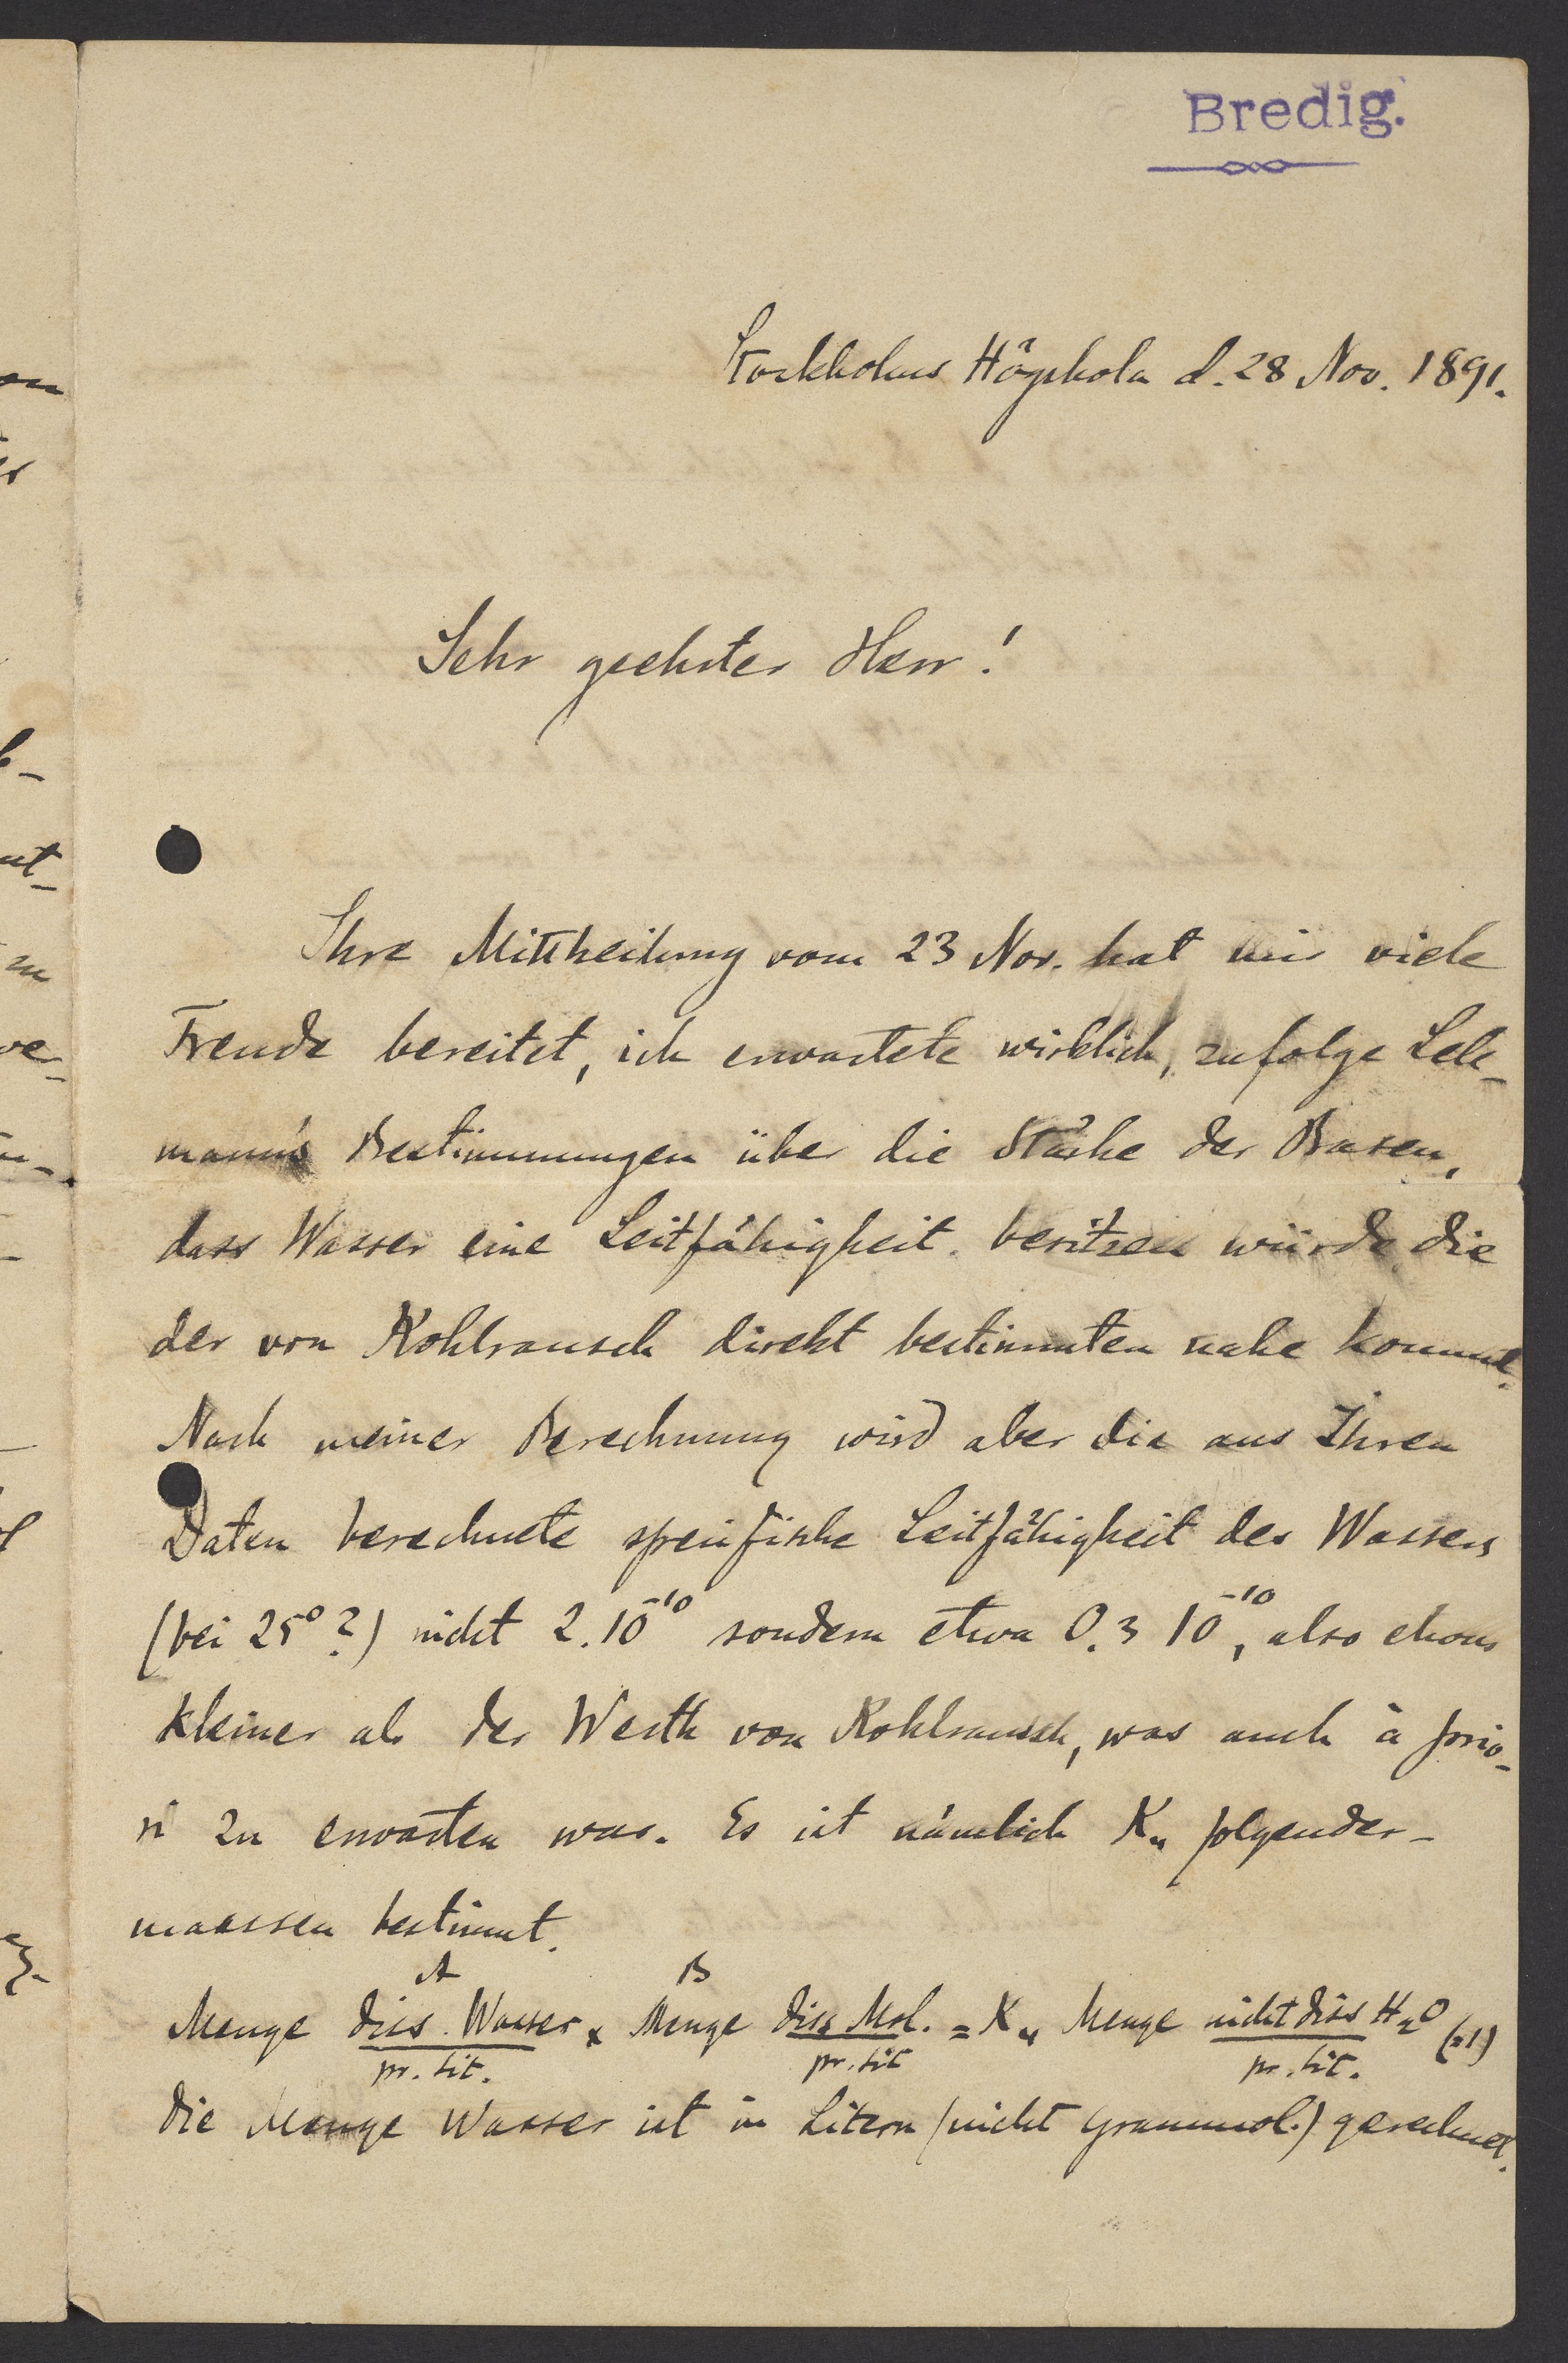 Bredig.
Stockholms Högskola d. 28 Nov. 1891.
Sehr geehrter Herr!
Ihre Mittheilung vom 23 Nov. hat mir viele
Freude bereitet, ich erwartete wirklich, zufolge Lell-
mann's Bestimmungen über die Stärke der Basen,
dass Wasser eine Leitfähigkeit besitzen würde, die
der von Kohlrausch direkt bestimmten nahe kommt.
Nach meiner Berechnung wird aber die aus Ihren
Daten berechnete speifische Leitfähigkeit des Wassers
(bei 25° ?) nicht 2.10⁻¹⁰ sondern etwa 0.3 10⁻¹⁰, also etwas
kleiner als der Werth von Kohlrausch, was auch à prio-
ri zu erwarten war. Es ist nämlich K₄ folgender-
maassen bestimmt.
A B
Menge diss. Wasser x Menge diss Mol. = K₄ Menge nicht diss H₂O (=1)
pr. Lit. pr. Lit pr. Lit.
Die Menge Wasser ist in Litern (nicht Grammol.) gerechnet.